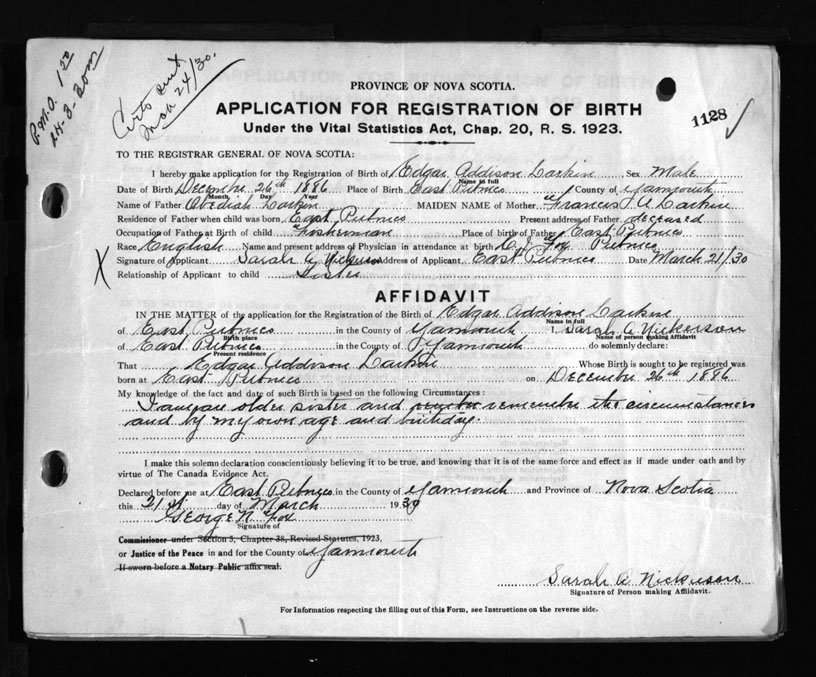 P.M.O. 1.00
24-3-30 
Certs sent
Mch 24/30.
PROVINCE OF NOVA SCOTIA.
APPLICATION FOR REGISTRATION OF BIRTH
1128
Under the Vital Statistics Act, Chap. 20, R. S. 1923.
TO THE REGISTRAR GENERAL OF NOVA SCOTIA:
I hereby make application for the Registration of Birth of Edgar Addison Larkin Sex Male
Name in full
Date of Birth December 26th 1886 Place of Birth East Pubnico County of Yarmouth
Month Day Year
Name of Father Obediah Larkin MAIDEN NAME of Mother Frances A Larkin
Residence of Father when child was born East Pubnico Present address of Father deceased
Occupation of Father at Birth of child Fisherman Place of birth of Father East Pubnico
Race English Name and present address of Physician in attendance at birth Fox Pubnico
X Signature of Applicant Sarah A Nickerson Address of Applicant East Pubnico Date March 21/30
Relationship of Applicant to child Sister
AFFIDAVIT
IN THE MATTER of the application for the Registration of the Birth of Edgar Addison Larkin
Name in full
of East Pubnico in the County of Yarmouth I, Sarah A Nickerson
Birth place Name of person making Affidavit
of East Pubnico in the County of Yarmouth do solemnly declare:
Present residence
That Edgar Addison Larkin Whose Birth is sought to be registered was
born at East Pubnico on December 26th 1886
My knowledge of the fact and date of such Birth is based on the following Circumstances:
I am an older sister and remember the circumstances
and by my own age and birthday.
I make this solemn declaration conscientiously believing it to be true, and knowing that it is of the same force and effect as if made under oath and by
virtue of The Canada Evidence Act.
Declared before me at East Pubnico in the County of Yarmouth and Province of Nova Scotia
this 21st day of March 1930
George N Fox
Signature of
Commissioner under Section 5, Chapter 38, Revised Statutes, 1923,
or Justice of the Peace in and for the County of Yarmouth
If sworn before a Notary Public affix seal.
Sarah A Nickerson
Signature of Person making Affidavit.
For Information respecting the filling out of this Form, see Instructions on the reverse side.